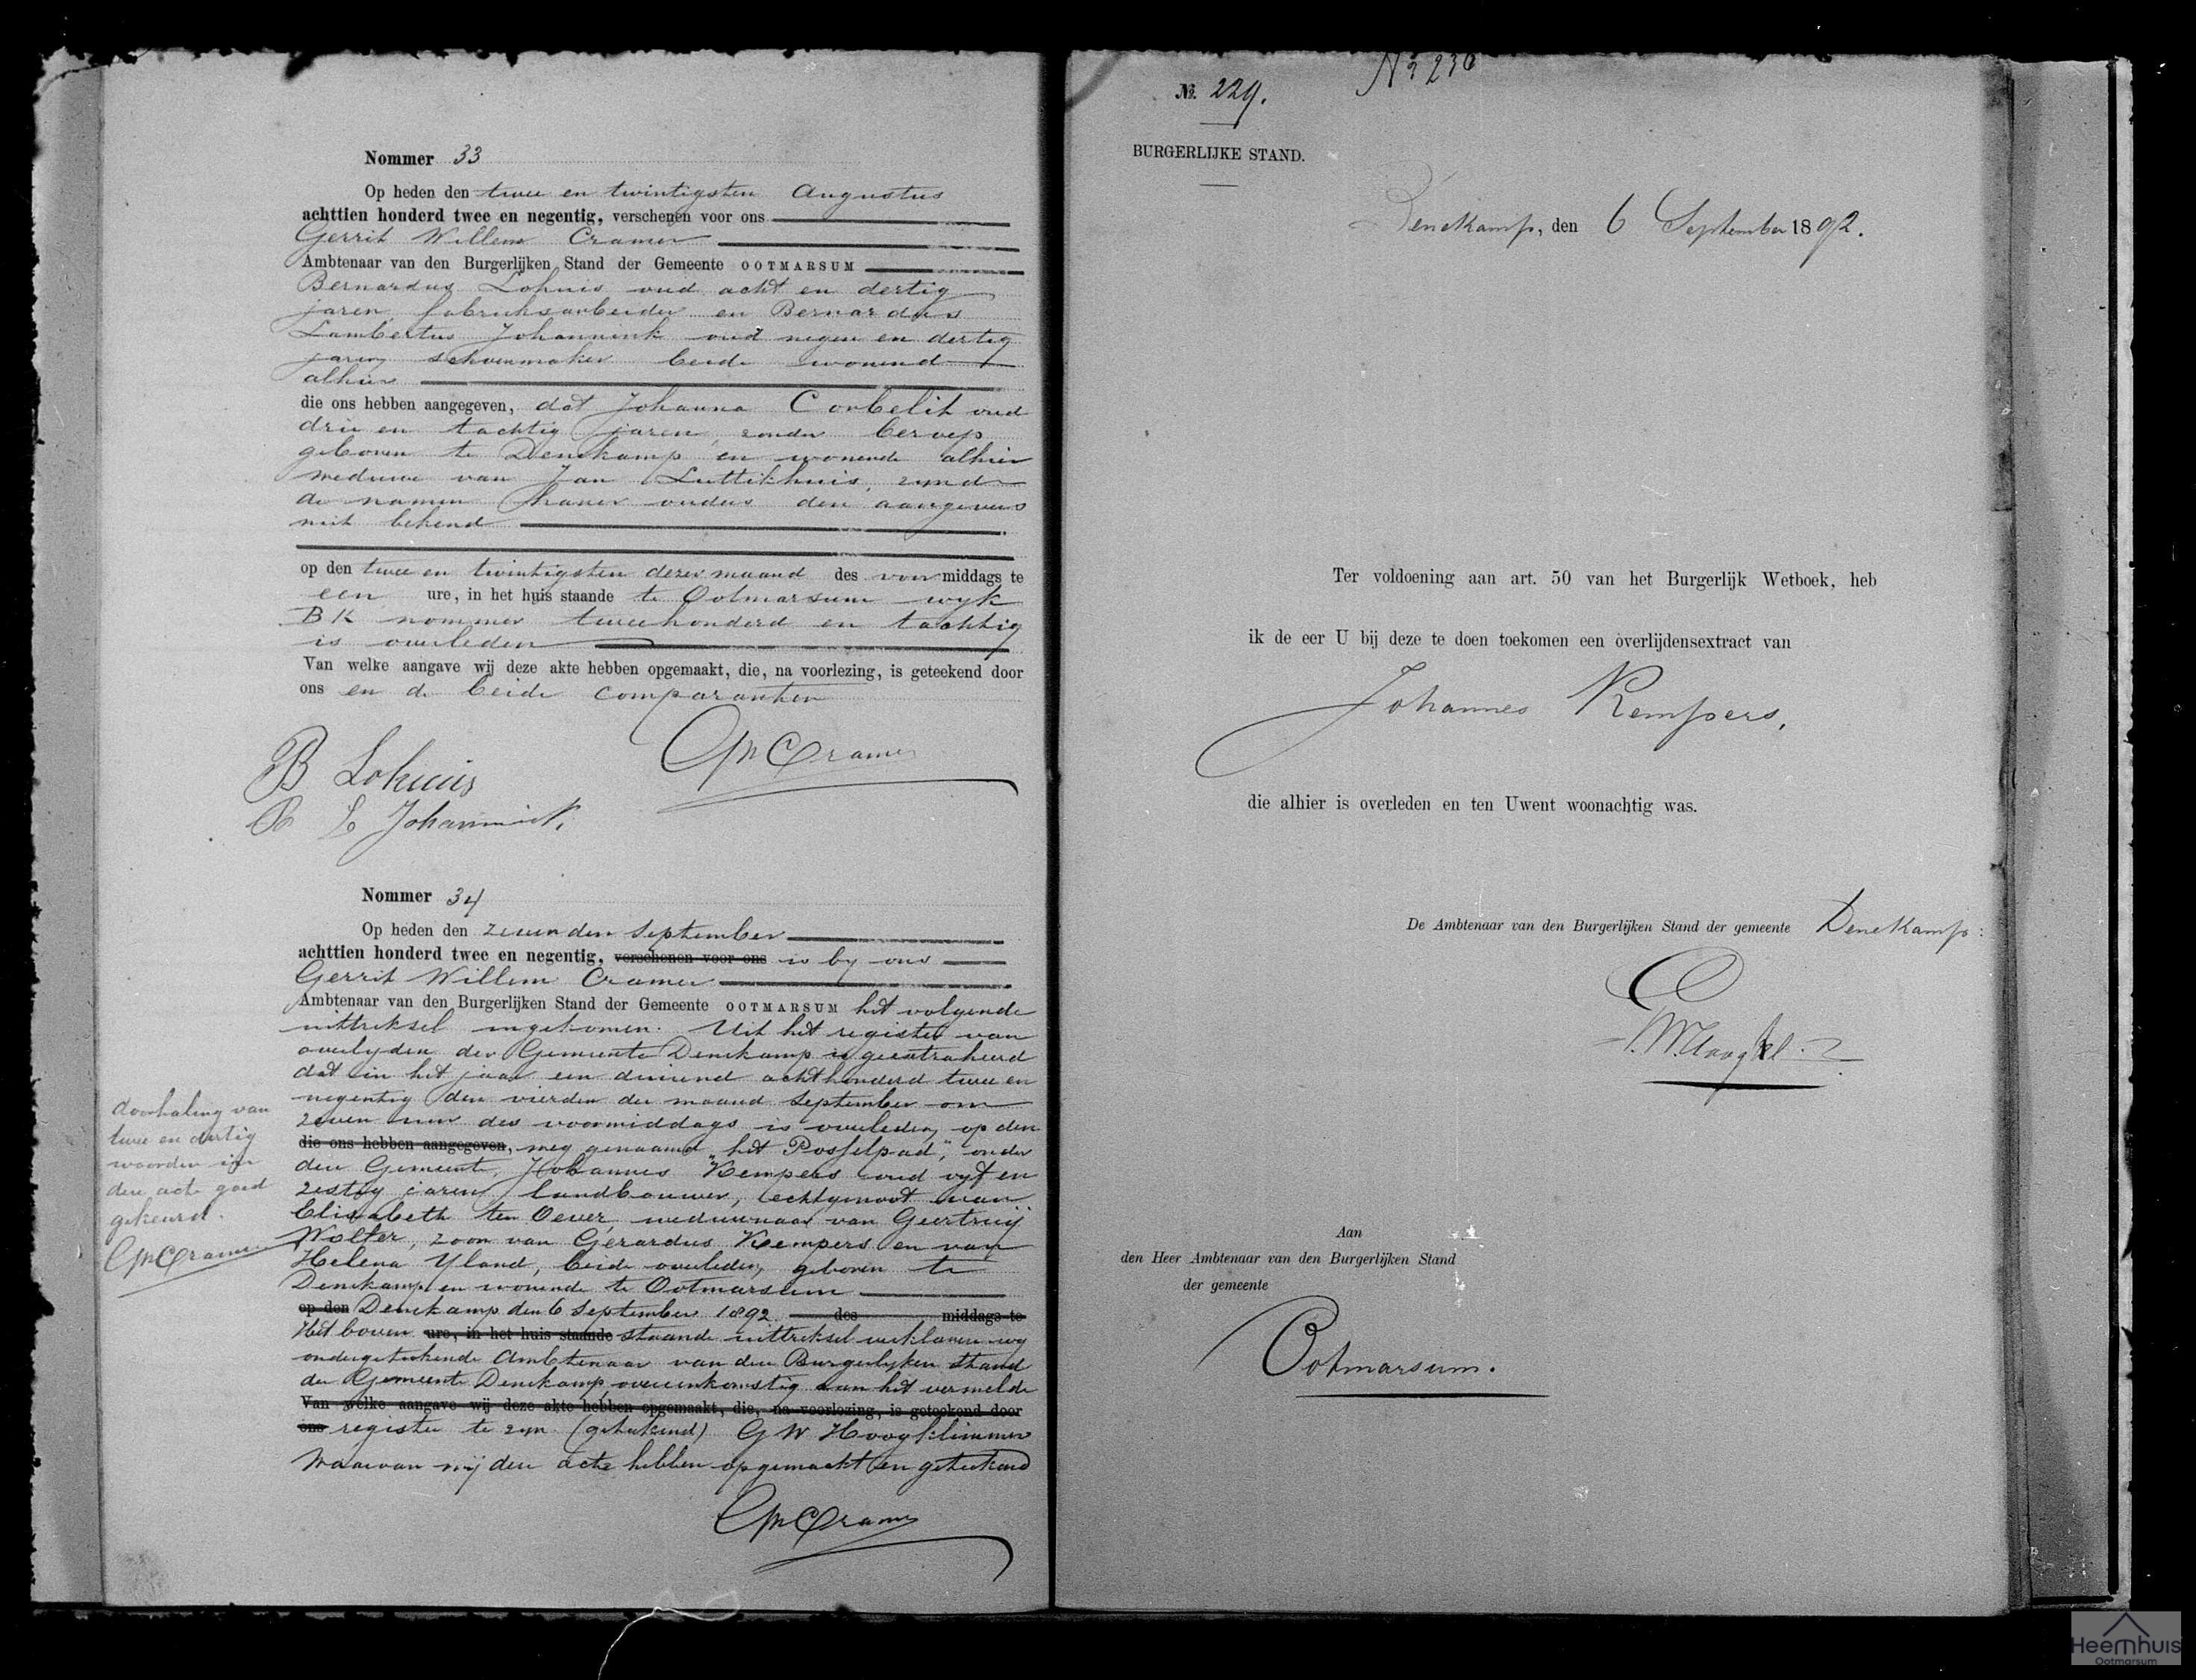 Nommer 33
Op heden den twee en twintigsten Augustus
achttien honderd twee en negentig, verschenen voor ons
Gerrit Willem Cramer
Ambtenaar van den Burgerlijken Stand der Gemeente OOTMARSUM
Bernardus Lohuis oud acht en dertig
jaren, fabrieksarbeider en Bernardus
Lambertus Johannink oud negen en dertig
jaren, schoenmaker beide wonend
alhier
die ons hebben aangegeven, dat Johanna Corbelit oud
drie en tachtig jaren, zonder beroep
geboren te Denekamp en wonende alhier
weduwe van Jan Luttikhuis, zynde
de namen harer ouders den aangevers
niet bekend
op den twee en twintigsten dezer maand des voormiddags te
een ure, in het huis staande te Ootmarsum wyk
BK nommer tweehonderd en tachtig
is overleden
Van welke aangave wij deze akte hebben opgemaakt, die, na voorlezing, is geteekend door
ons en de beide comparanten
GWCramer
B Lohuis
B L Johannink.
Nommer 34
Op heden den zevenden September
achttien honderd twee en negentig, verschenen voor ons is by ons
Gerrit Willem Cramer
Ambtenaar van den Burgerlijken Stand der Gemeente OOTMARSUM het volgende
uittreksel ingekomen. Uit het register van
overlyden der Gemeente Denekamp is geextraheerd
dat in het jaar een duizend achthonderd twee en
negentig den vierden der maand September om
zeven uur des voormiddags is overleden, op den
die ons hebben aangegeven, weg genaamd "het Posselpad", onder
deze Gemeente, Johannes Kempers oud vyf en
zestig jaren, landbouwer, echtgenoot van
Elisabeth ten Oever, weduwnaar van Geertruij
Wolter, zoon van Gerardus Kempers en van
Helena Yland, beide overleden, geboren te
Denekamp en wonende te Ootmarsum
op den Denekamp den 6 September 1892. des middags te
Het boven ure, in het huis staande staande uittreksel verklaren wy
ondergeteekende Ambtenaar van den Burgerlyken Stand
der Gemeente Denekamp, overeenkomstig aan het vermelde
Van welke aangave wij deze akte hebben opgemaakt, die, na voorlezing, is geteekend door
ons register te zyn (geteekend) G W Hoogklimmer
Waarvan wij deze acte hebben opgemaakt en geteekend
GWCramer
doorhaling van
twee en dertig
woorden in
deze acte goed
gekeurd.
GWCramer
No. 229.
No 230
BURGERLIJKE STAND.
Denekamp, den 6 September 1892.
Ter voldoening aan art. 50 van het Burgerlijk Wetboek, heb
ik de eer U bij deze te doen toekomen een overlijdensextract van
Johannes Kempers,
die alhier is overleden en ten Uwent woonachtig was.
De Ambtenaar van den Burgerlijken Stand der gemeente Denekamp:
Aan
den Heer Ambtenaar van den Burgerlijken Stand
der gemeente
Ootmarsum.
Heemhuis
Ootmarsum